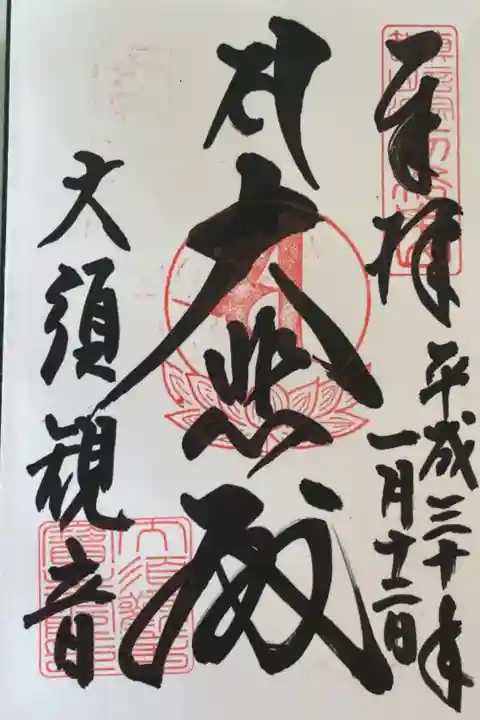 奉拝
平成三十年
一月十二日
大悲殿
大須観音